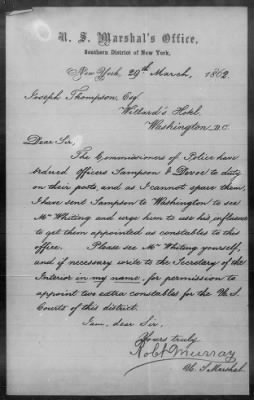 U. S. Marshal's Office,
Southern District of New York,
New York, 29th March, 1862.
Joseph Thompson, Esq
Willard's Hotel,
Washington, D.C.
Dear Sir,
The Commissioners of Police have
ordered officers Sampson & Devoe to duty
on their posts, and as I cannot spare them,
I have sent Sampson to Washington to see
Mr Whiting and urge him to use his influence
to get them appointed as constables to this
office. Please see Mr Whiting yourself,
and if necessary write to the Secretary of the
Interior in my name, for permission to
appoint two extra constables for the U. S.
Courts of this district.
I am, dear Sir,
Yours truly
Robt Murray
U. S Marshal.